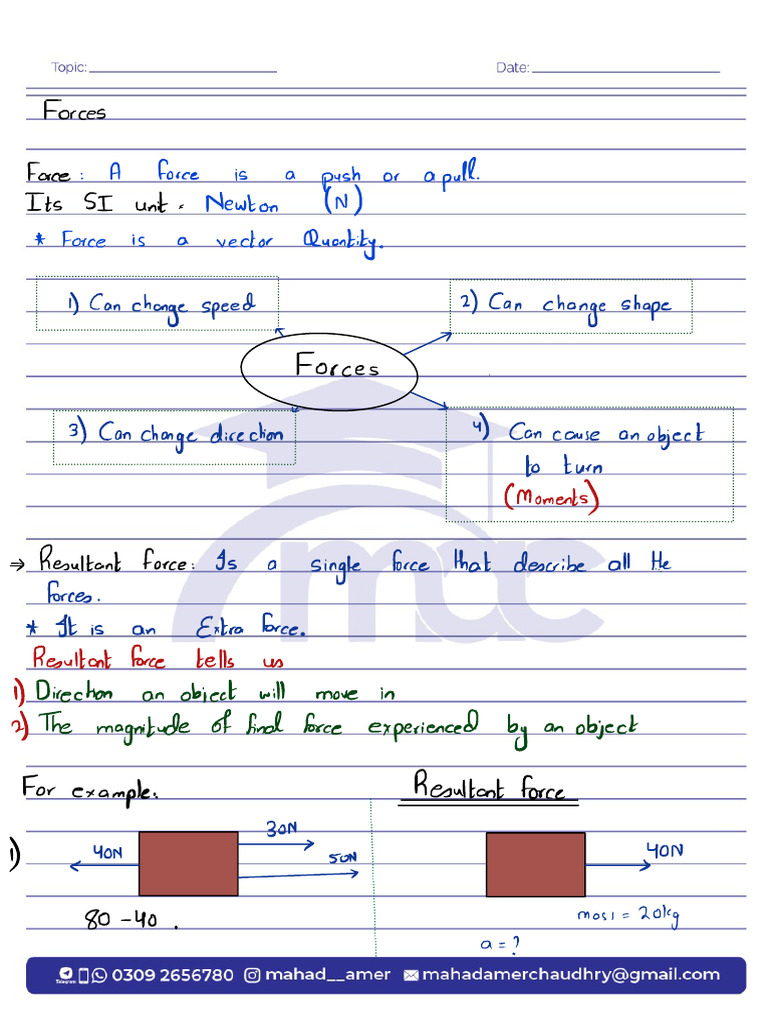 Topic:
Date:
Forces
Force: A force is a push or a pull.
Its SI unit = Newton (N)
* Force is a vector Quantity.
1) Can change speed
2) Can change shape
Forces
3) Can change direction
4) Can cause an object
to turn
(Moments)
→ Resultant force: Is a single force that describe all the
forces.
* It is an Extra force.
Resultant force tells us
1) Direction an object will move in
2) The magnitude of final force experienced by an object
For example:
Resultant force
1)
40N
30N
50N
40N
80 - 40 .
mass = 20kg
a = ?
mac
Telegram
0309 2656780
mahad__amer
mahadamerchaudhry@gmail.com